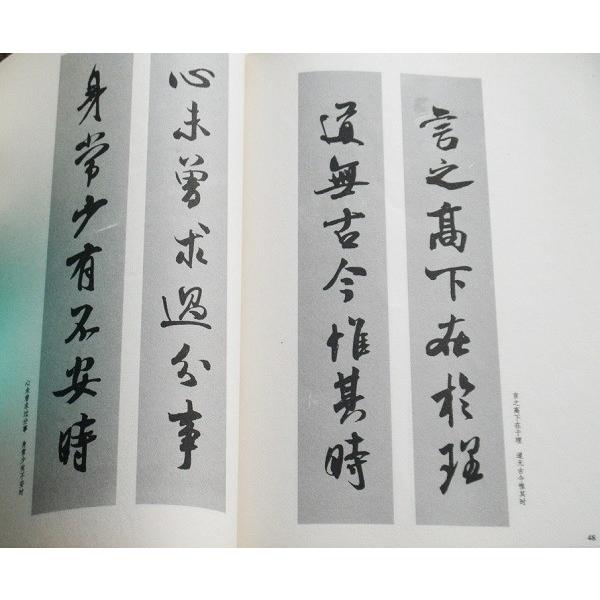 言之高下在於理
道無古今惟其時
言之高下在于理 道无古今惟其时
48
心未曾求過分事
身常少有不安時
心未曾求过分事 身常少有不安时